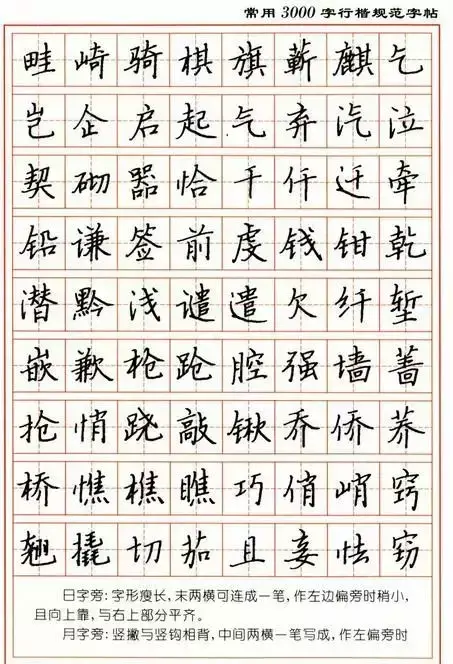 常用3000字行楷规范字帖
畦崎骑棋旗蕲麒乞
岂企启起气弃汽泣
契砌器恰千仟迁牵
铅谦签前虔钱钳乾
潜黔浅谴遣欠纤堑
嵌歉枪跄腔强墙蔷
抢悄跷敲锹乔侨荞
桥憔樵瞧巧俏峭窍
翘撬切茄且妾怯窃
日字旁:字形瘦长,末两横可连成一笔,作左边偏旁时稍小,
且向上靠,与右上部分平齐。
月字旁:竖撇与竖钩相背,中间两横一笔写成,作左偏旁时